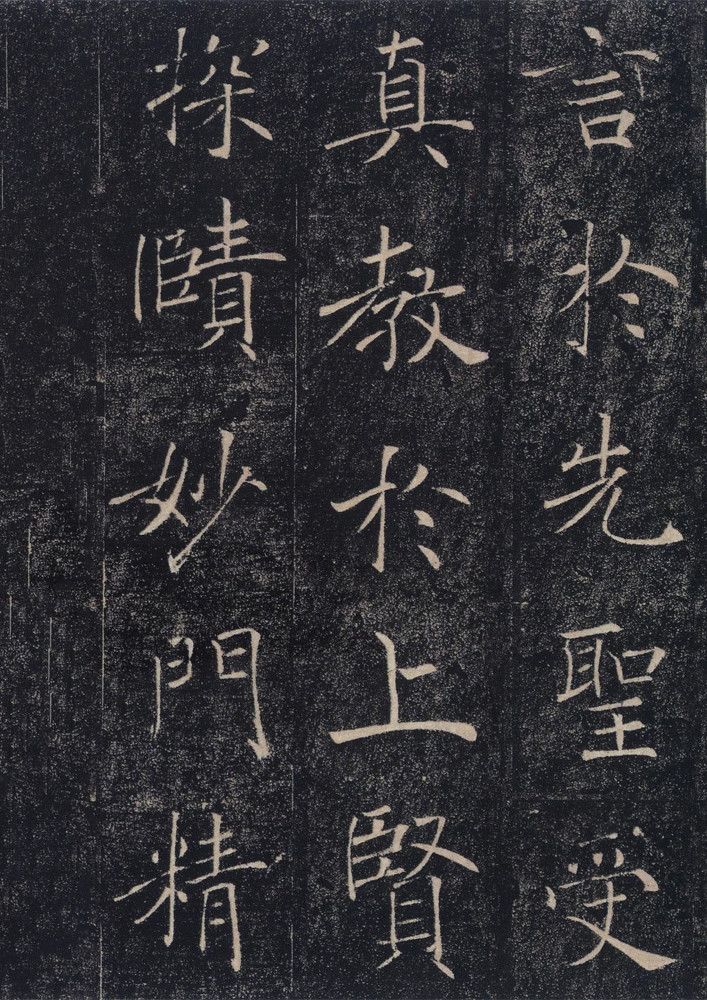 言於先聖受
真教於上賢
探賾妙門精